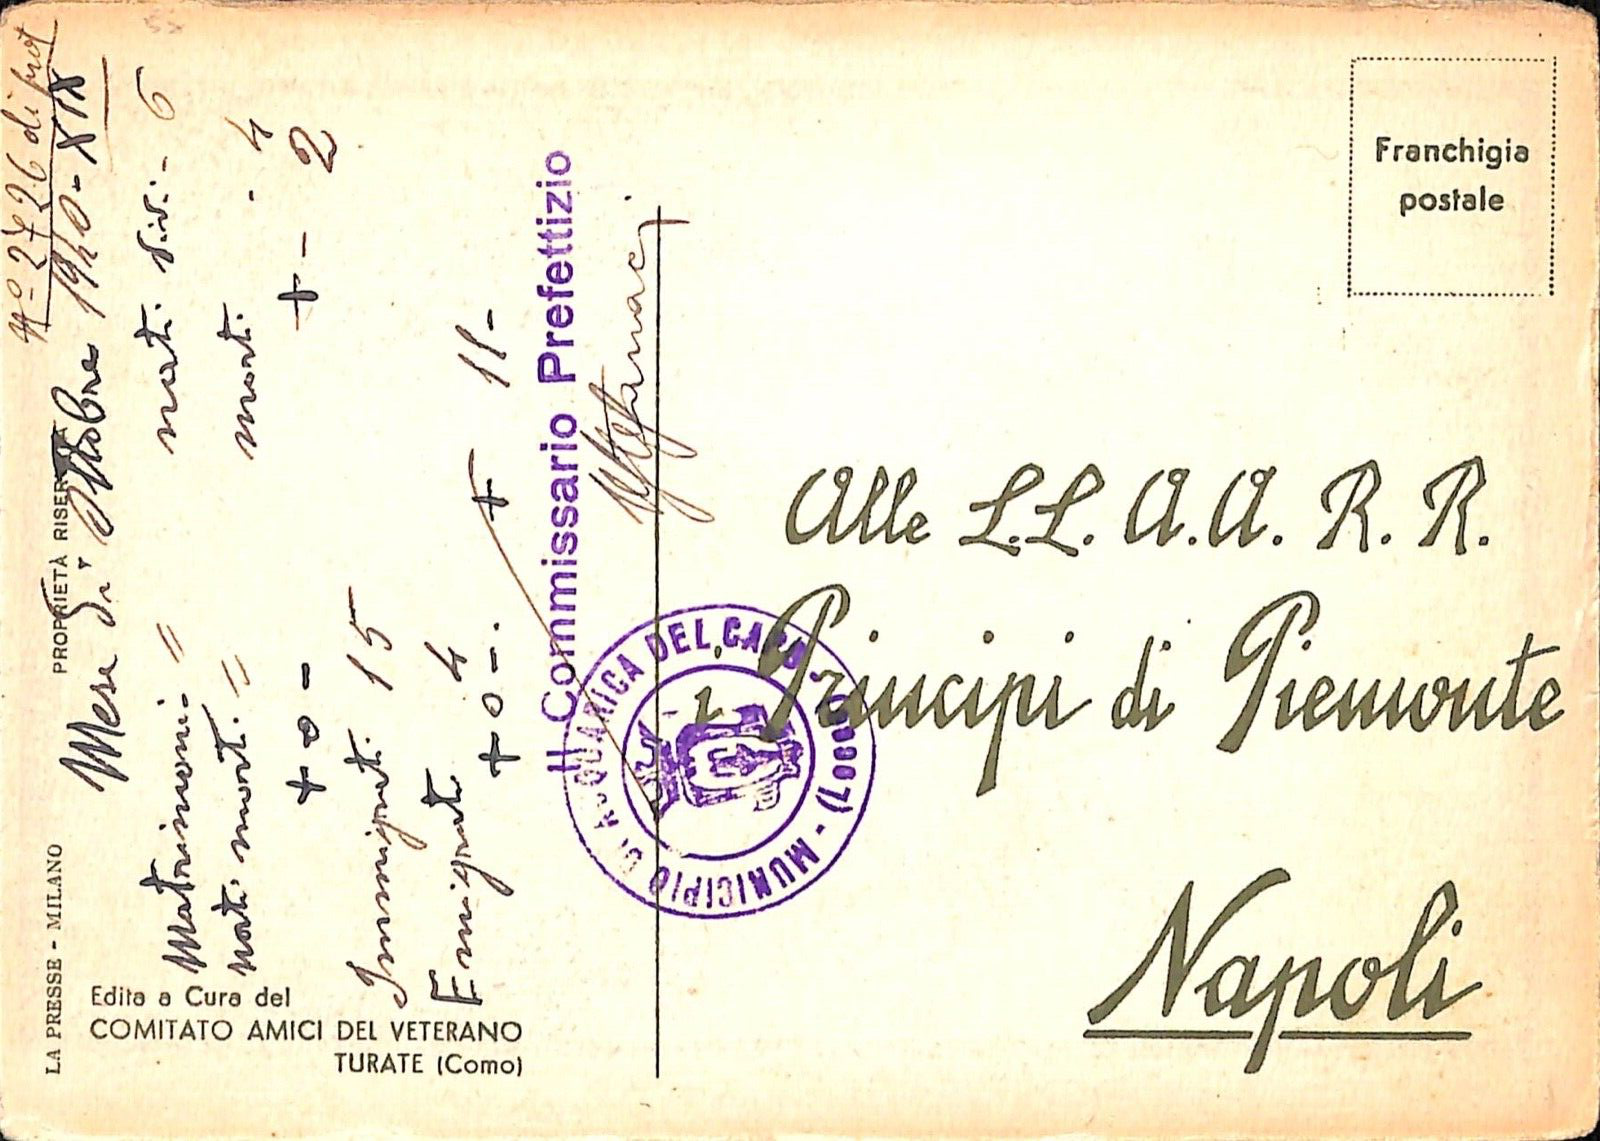 Nº 2726 di prot
Mese di Ottobre 1940-XIX
Matrimoni - =
nati vivi - 6
nati morti =
morti - 4
+ 0 -
+ - 2
Immigrati 15
Emigrati 4
+ 0 -. + 11-
Il Commissario Prefettizio
MUNICIPIO DI ACQUARICA DEL CAPO (LECCE)
PROPRIETÀ RISERVATA
LA PRESSE - MILANO
Edita a Cura del
COMITATO AMICI DEL VETERANO
TURATE (Como)
Franchigia
postale
Alle L.L. A.A. R. R.
i Principi di Piemonte
Napoli